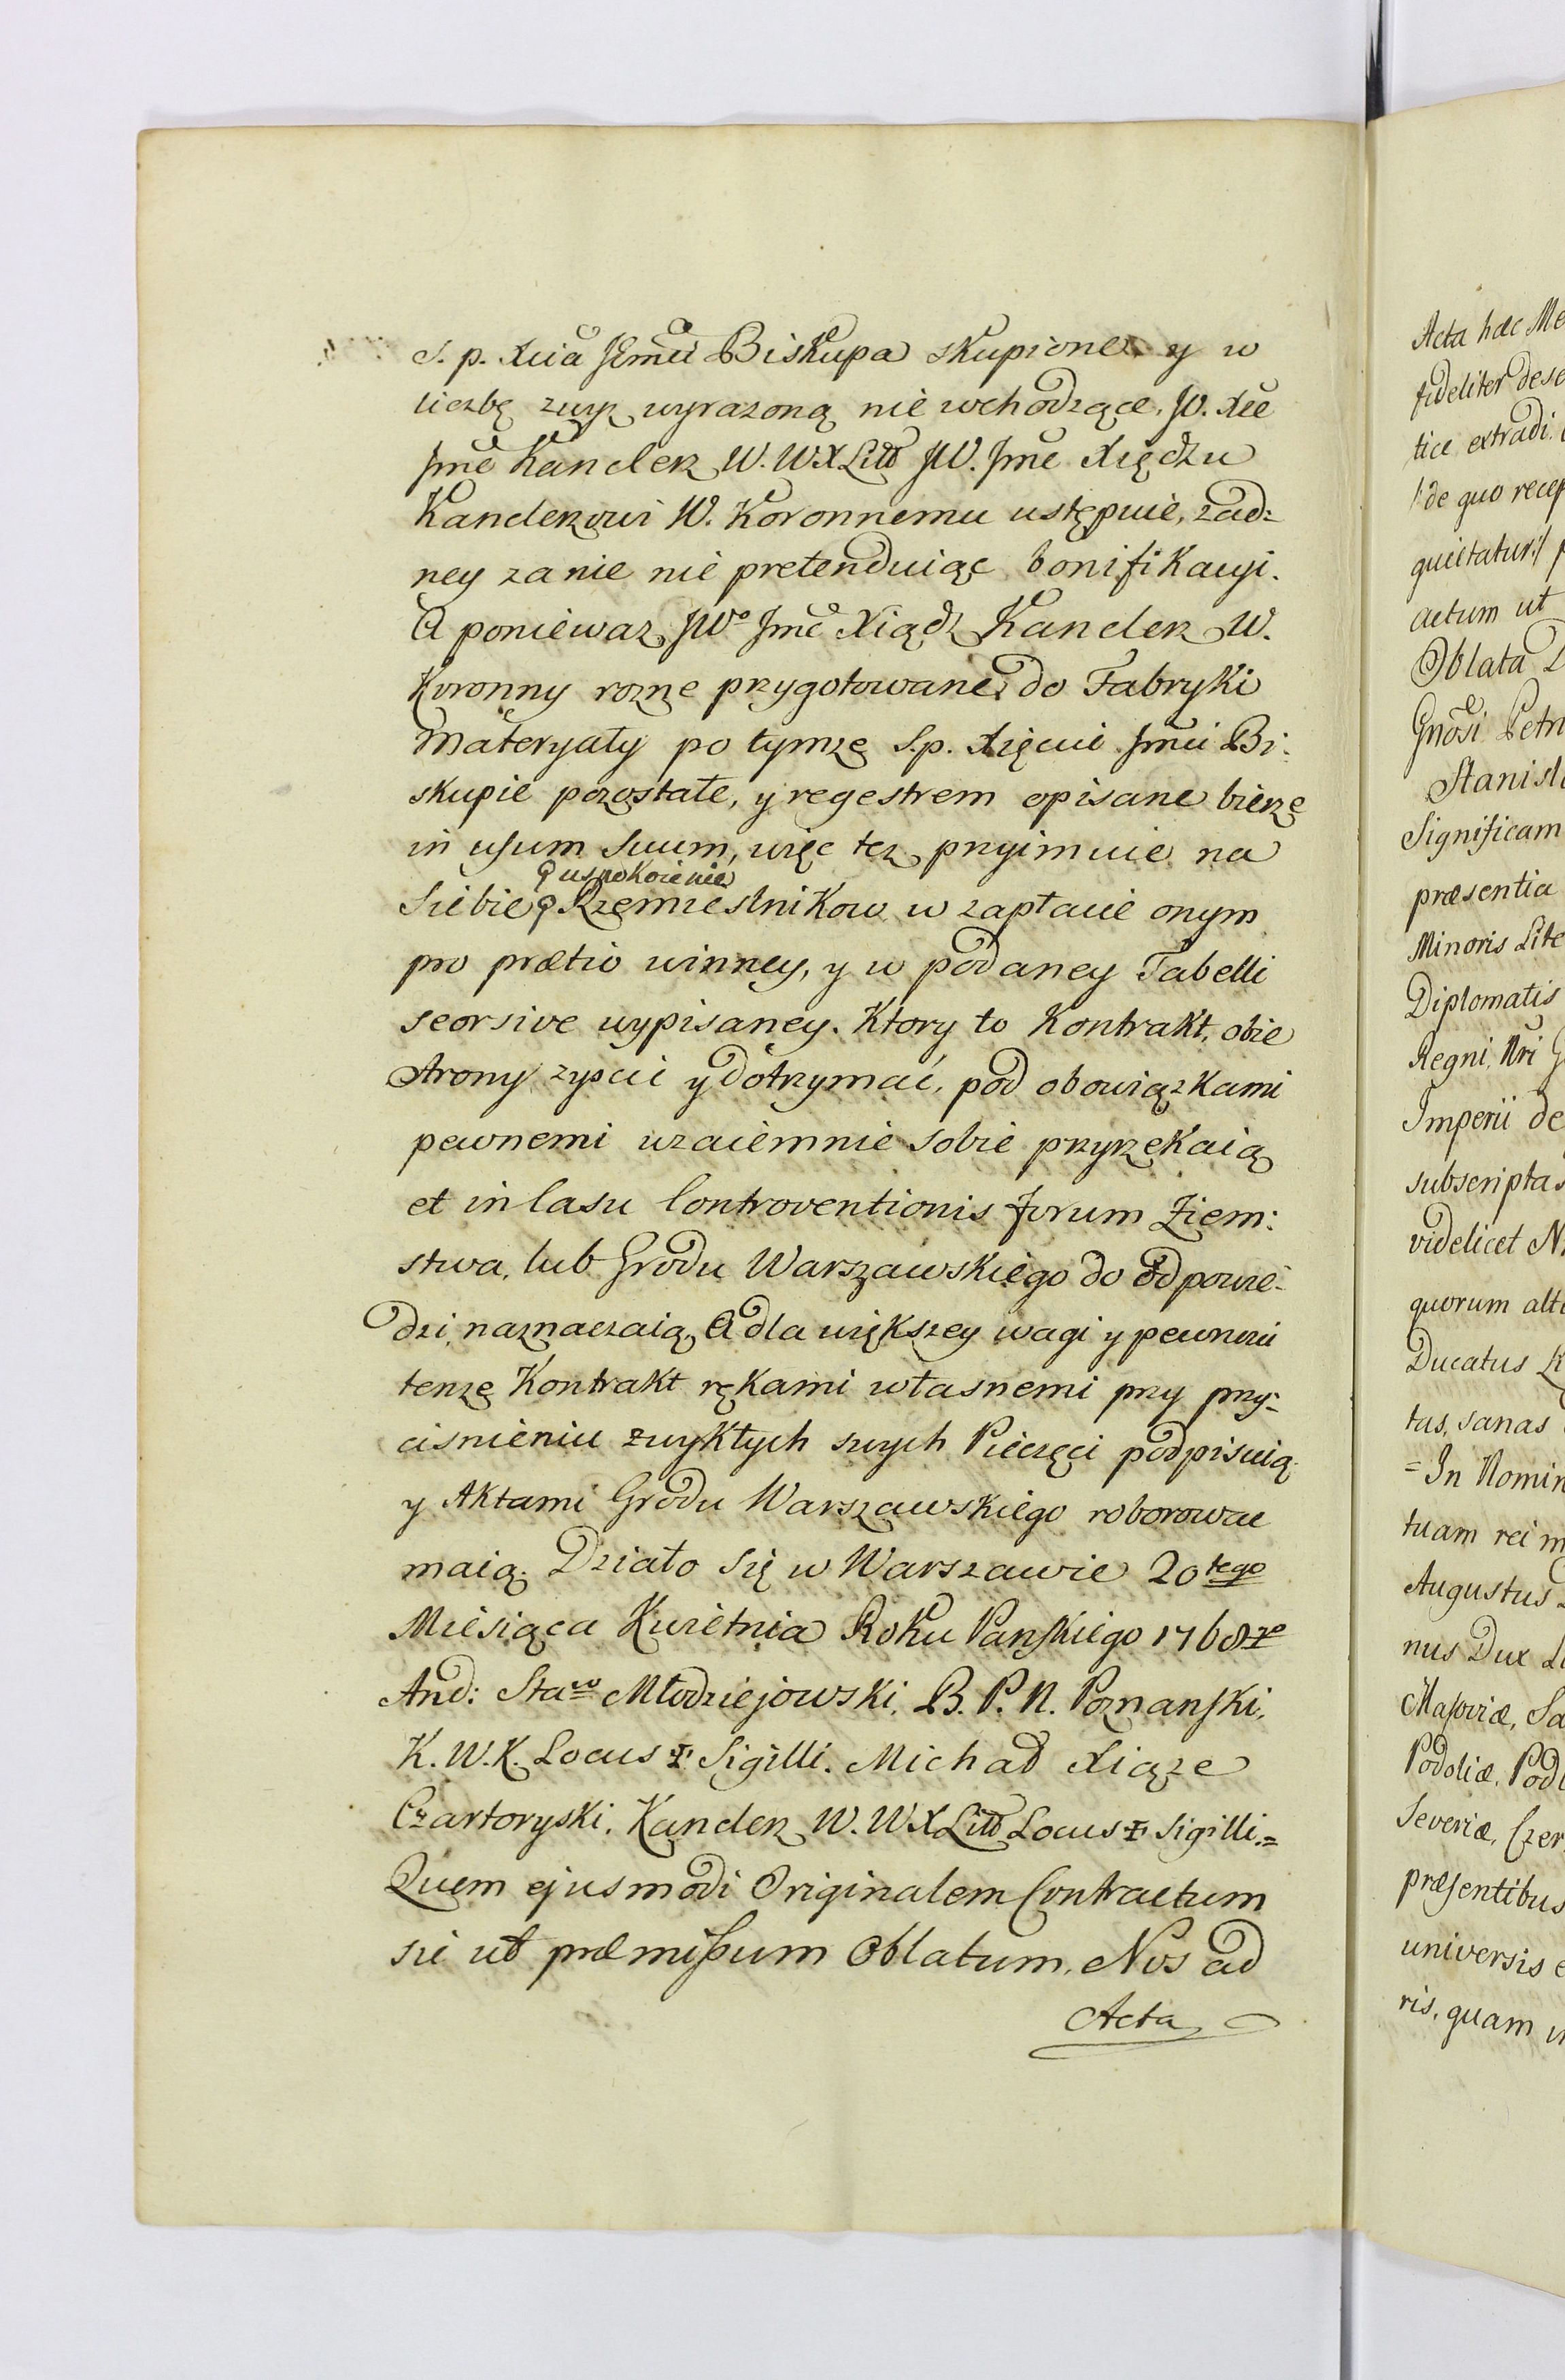 S. p. Xcia Jemci Biskupa skupione, y w
liczbę zwyz wyrazoną nie wchodzące, JO. Xże
Jmć Kanclerz W. W X Litt JW. Jmć Xiędzu
Kanclerzowi W. Koronnemu ustępuie, zad=
ney za nie nie pretenduiąc bonifikacyi.
A poniewaz JWo Jmć Xiądz Kanclerz W.
Koronny rozne przygotowane do Fabryki
Materyały po tymze S. p. Xięciu Jmci Bi=
skupie pozostałe, y regestrem opisane bierze
in usum suum, więc tez przyimuie na
uspokoienie
Siebie Rzemieslnikow w zapłacie onym
pro prætio winney, y w podaney Tabelli
seorsive wypisaney. Ktory to Kontrakt, obie
Strony zyscić y dotrzymać, pod obowiązkami
pewnemi wzaiemnie sobie przyrzekaią
et in Casu Controventionis forum Ziem:
stwa, lub Grodu Warszawskiego do odpowie-
dzi naznaczaią, A dla większey wagi y pewności
tenze Kontrakt rękami własnemi przy przy=
cisnieniu zwykłych swych Pieczęci podpisuią
y Aktami Grodu Warszawskiego roborować
maią. Działo się w Warszawie 20tego
Miesiąca Kwietnia Roku Panskiego 1768go
And: Staw Młodziejowski. B. P. N. Poznanski,
K. W. K. Locus ☩ Sigilli. Michał Xiąze
Czartoryski, Kanclerz W. W X Litt Locus ☩ Sigilli.=
Quem ejusmodi Originalem Contractum
sic ut præmissum Oblatum, Nos ad
Acta
Acta hæc Me
fideliter dese
tice extradi.
/:de quo recep
quietatur:/ p
actum ut
Oblata D
Gnosi Petri
Stanisl
Significam
præsentia
Minoris Lite
Diplomatis
Regni, Nri G
Imperii de
subscriptas
videlicet N
quorum alt
Ducatus L
tas, sanas
=In Nomin
tuam rei m
Augustus
nus Dux Li
Masoviæ, Sa
Podoliæ, Podl
Severiæ, Czer
præsentibus
universis e
ris, quam in